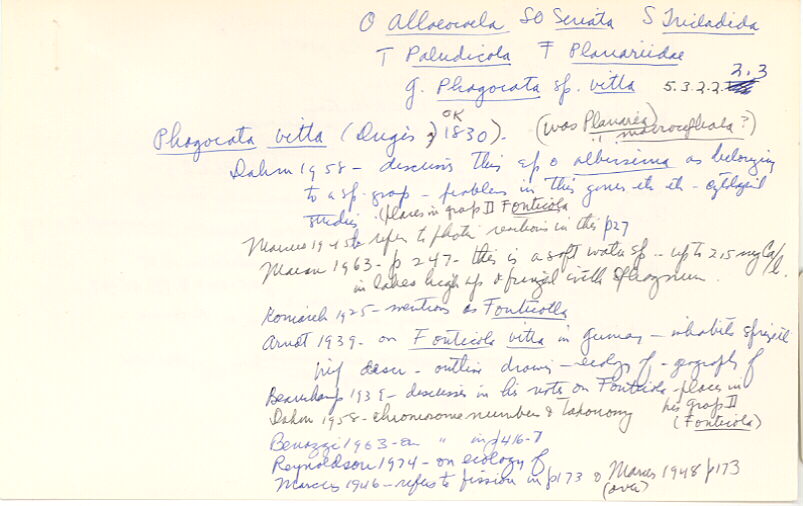 O Alloeocoela SO Seriata S Tricladida
T Paludicola F Planariidae
g. Phagocata sp. vitta 5.3.2.2. 2.3
OK
Phagocata vitta (Dugès, 1830). (was Planaria
" macrocephala?)
Dahm 1958 - discusses this sp & albissima as belonging
to a sp. group - problems in this genus etc etc - cytological
studies. (places in group II Fonticola
Marcus 1945b refers to photic reactions in this p27
1963 - p 247 - this is a soft water sp - up to 2.5 mg Ca/l.
in lakes high up & fringed with Sphagnum.
Komárek 1925 - mentions as Fonticola
Arndt 1939 - on Fonticola vitta in Germany - inhabits
brief descr - outline drawing - ecology of - geography of
Beauchamp 1939 - discusses in his note on Fonticola - places in
his group II
Dahm 1958 - chromosome number & Taxonomy
(Fonticola)
Benazzi 1963 - on " in p416-7
Reynoldson 1974 - on ecology of
Marcus 1946 - refers to fission in p173 & Marcus 1948 p173
(over)